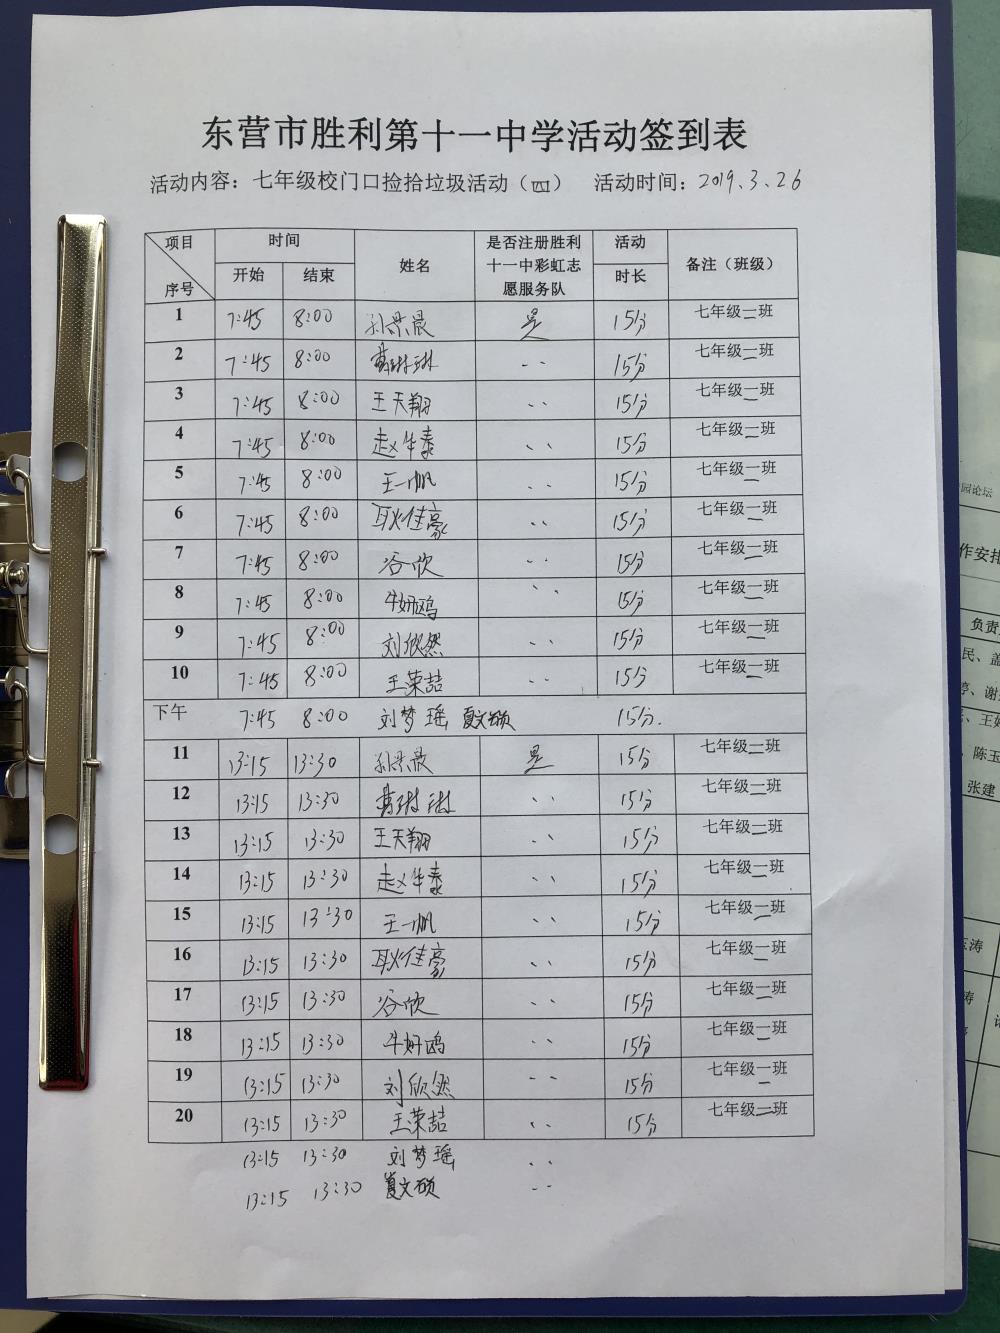 东营市胜利第十一中学活动签到表
活动内容：七年级校门口捡拾垃圾活动（四） 活动时间：2019.3.26
项目 序号 时间 开始 结束 姓名 是否注册胜利十一中彩虹志愿服务队 活动时长 备注（班级）
1 7:45 8:00 孙景晨 是 15分 七年级二班
2 7:45 8:00 琳琳 、、 15分 七年级二班
3 7:45 8:00 王天翔 、、 15分 七年级二班
4 7:45 8:00 赵华泰 、、 15分 七年级二班
5 7:45 8:00 王一帆 、、 15分 七年级二班
6 7:45 8:00 耿佳豪 、、 15分 七年级二班
7 7:45 8:00 谷欣 、、 15分 七年级二班
8 7:45 8:00 牛妍鸥 、、 15分 七年级二班
9 7:45 8:00 刘欣然 、、 15分 七年级二班
10 7:45 8:00 王荣喆 、、 15分 七年级二班
下午 7:45 8:00 刘梦瑶 夏文硕 15分.
11 13:15 13:30 孙景晨 是 15分 七年级二班
12 13:15 13:30 琳琳 、、 15分 七年级二班
13 13:15 13:30 王天翔 、、 15分 七年级二班
14 13:15 13:30 赵华泰 、、 15分 七年级二班
15 13:15 13:30 王一帆 、、 15分 七年级二班
16 13:15 13:30 耿佳豪 、、 15分 七年级二班
17 13:15 13:30 谷欣 、、 15分 七年级二班
18 13:15 13:30 牛妍鸥 、、 15分 七年级二班
19 13:15 13:30 刘欣然 、、 15分 七年级二班
20 13:15 13:30 王荣喆 、、 15分 七年级二班
13:15 13:30 刘梦瑶 、、
13:15 13:30 夏文硕 、、
园论坛
作安排
负责
民、盖
婷、谢
、王
、陈玉
张建
玉涛
涛